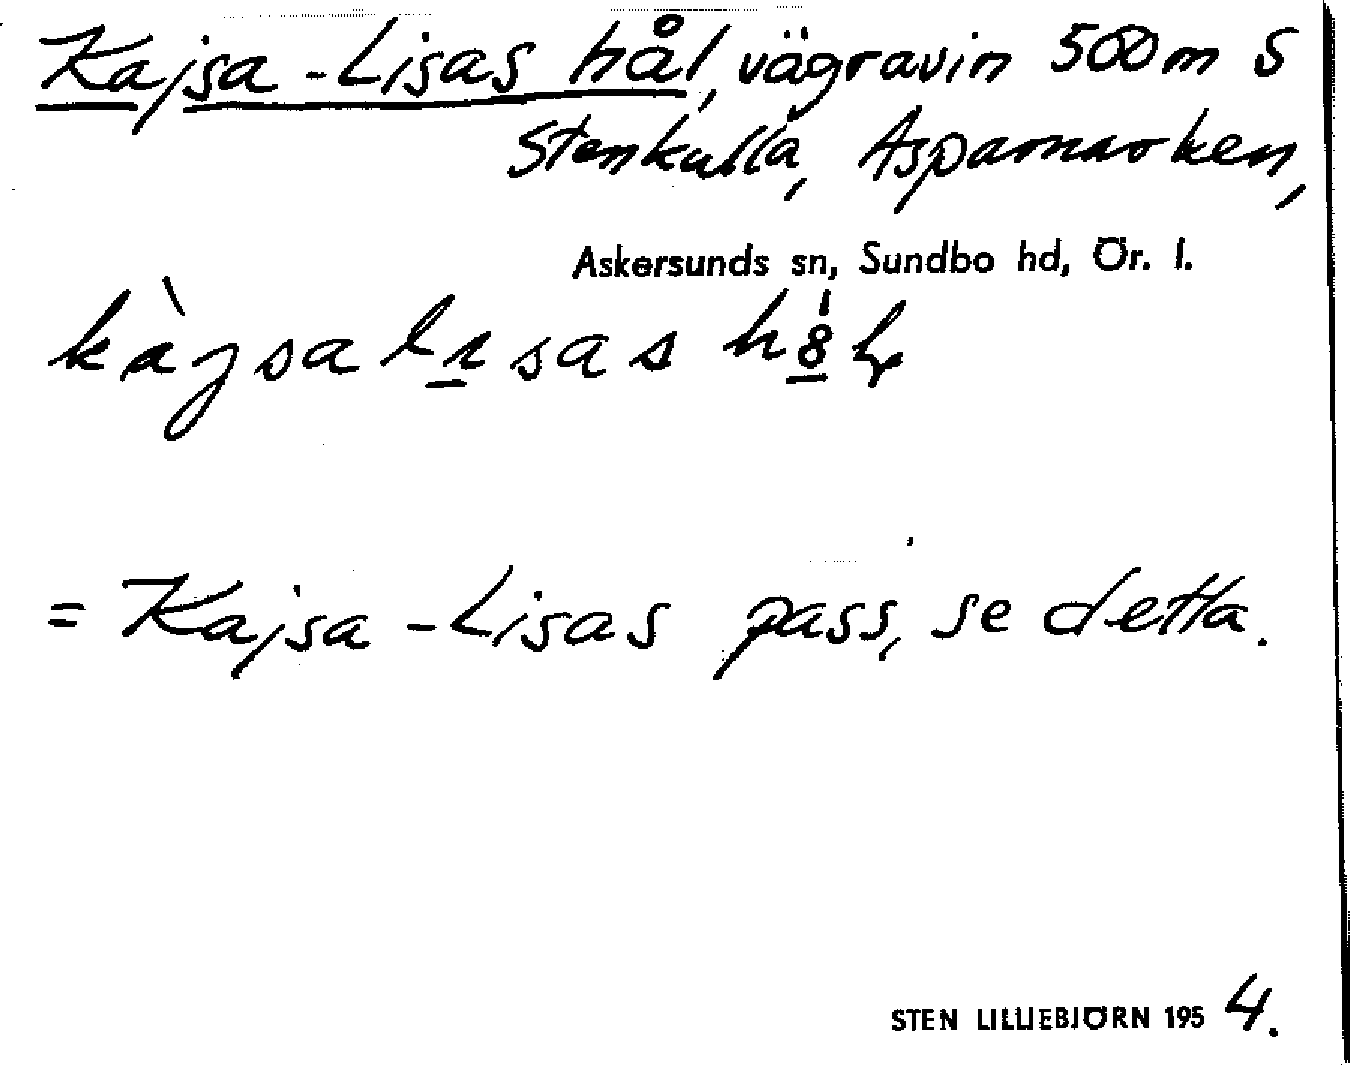 Kajsa-Lisas hål, vägravin 500 m S
Stenkulla, Aspamarken,
Askersunds sn, Sundbo hd, Ör. l.
= Kajsa-Lisas pass, se detta.
STEN LILLIEBJÖRN 1954.